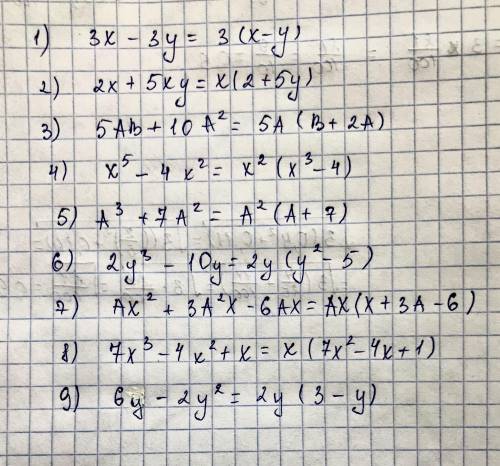 1) 3x - 3y = 3(x-y)
2) 2x + 5xy = x(2+5y)
3) 5AB + 10A² = 5A(B+2A)
4) x⁵ - 4x² = x²(x³-4)
5) A³ + 7A² = A²(A+7)
6) 2y³ - 10y = 2y(y²-5)
7) AX² + 3A²X - 6AX = AX(X+3A-6)
8) 7x³ - 4x² + x = x(7x²-4x+1)
9) 6y - 2y² = 2y(3-y)